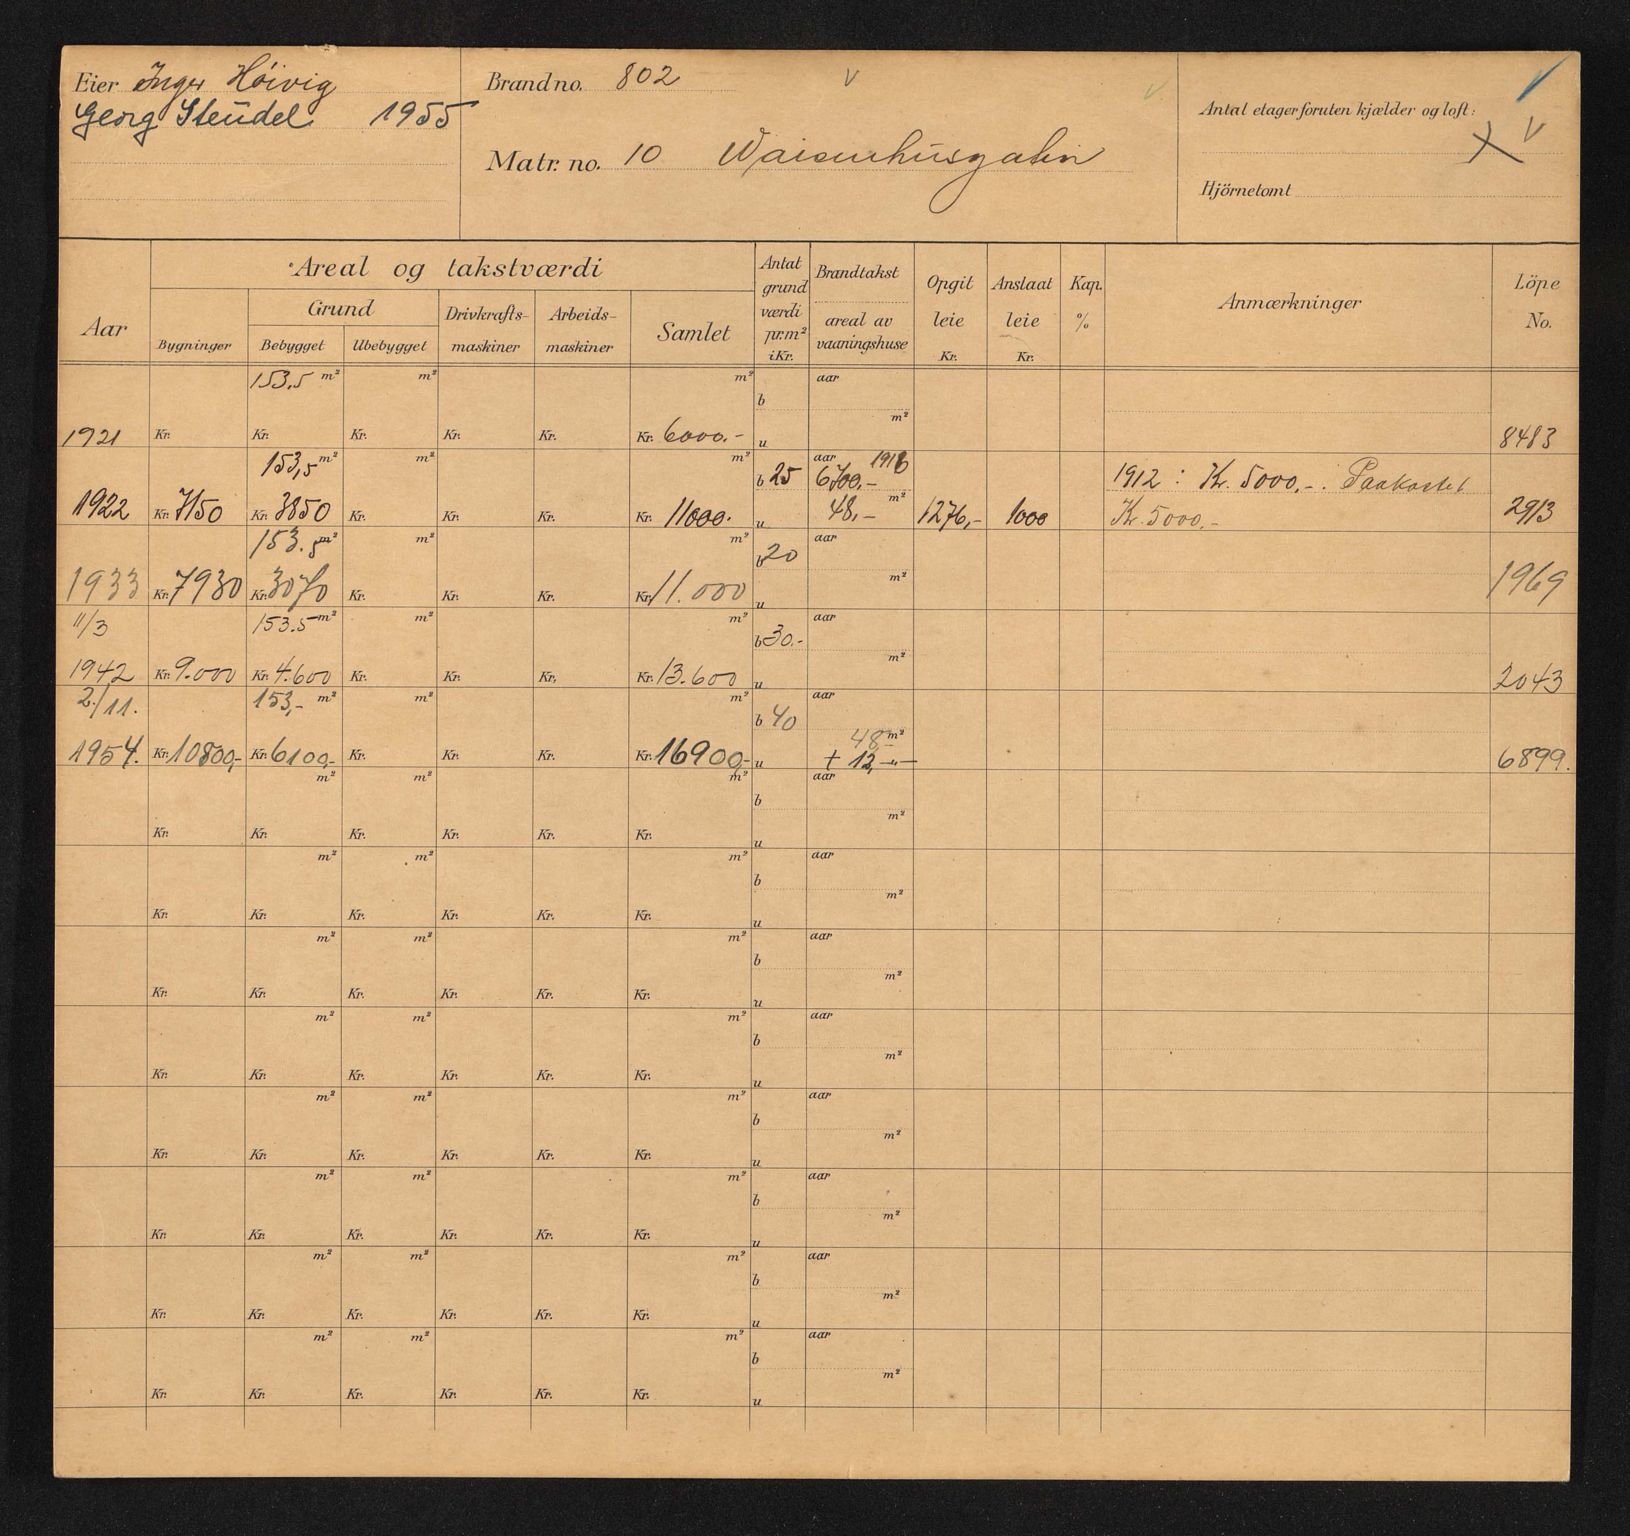 Eier Inger Höivig
Georg Steudel 1955
Brand no. 802 v
Matr. no. 10 Waisenhusgaten
Antal etager foruten kjælder og loft:
Hjörnetomt
Aar
Areal og takstværdi
Bygninger
Grund
Bebygget Ubebygget
Drivkrafts-
maskiner
Arbeids-
maskiner
Samlet
Antat
grund
værdi
pr. m²
i Kr.
Brandtakst
areal av
vaaningshuse
Opgit
leie
Kr.
Anslaat
leie
Kr.
Kap.
%
Anmærkninger
Löpe
No.
153,5 m² m² m² b aar
1921 Kr. Kr. Kr. Kr. Kr. Kr. 6000.- u m² 8483
153,5 m² m² m² b 25 aar 1916 6700,- 1912: Kr. 5000,-. Paakostet
1922 Kr. 7150 Kr. 3850 Kr. Kr. Kr. Kr. 11000.- u 48,- m² 1276,- 1000 Kr. 5000,- 2913
153.5 m² m² m² b 20 aar
1933 Kr. 7930 Kr. 3070 Kr. Kr. Kr. Kr. 11.000 u m² 1969
11/3 153.5 m² m² m² b 30.- aar
1942 Kr. 9.000 Kr. 4.600 Kr. Kr. Kr. Kr. 13.600 u m² 2043
2./11. 153,- m² m² m² b 40 aar
48,- m²
1954. Kr. 10800,- Kr. 6100,- Kr. Kr. Kr. Kr. 16900,- u + 12,-"- 6899.
m² m² m² b aar
Kr. Kr. Kr. Kr. Kr. Kr. u m²
m² m² m² b aar
Kr. Kr. Kr. Kr. Kr. Kr. u m²
m² m² m² b aar
Kr. Kr. Kr. Kr. Kr. Kr. u m²
m² m² m² b aar
Kr. Kr. Kr. Kr. Kr. Kr. u m²
m² m² m² b aar
Kr. Kr. Kr. Kr. Kr. Kr. u m²
m² m² m² b aar
Kr. Kr. Kr. Kr. Kr. Kr. u m²
m² m² m² b aar
Kr. Kr. Kr. Kr. Kr. Kr. u m²
m² m² m² b aar
Kr. Kr. Kr. Kr. Kr. Kr. u m²